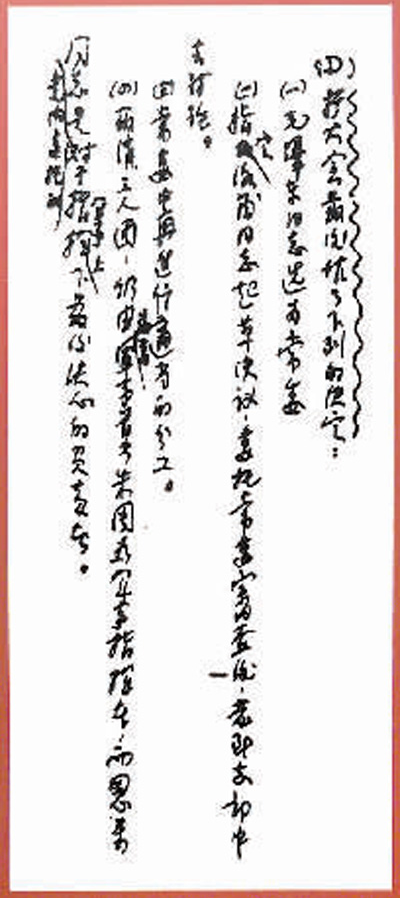 (四)扩大会最后作了下列的决定:
(一)毛澤东同志选为常委
(二)指定洛甫同志起草决议,委托常委审查后,发到支部中
去討論。
(三)常委中再进行适当的分工。
(四)取消三人团,仍由最高军事首长朱周为军事指挥者,而恩来
同志是党内委托的对于指挥军事上下最后决心的负责者。